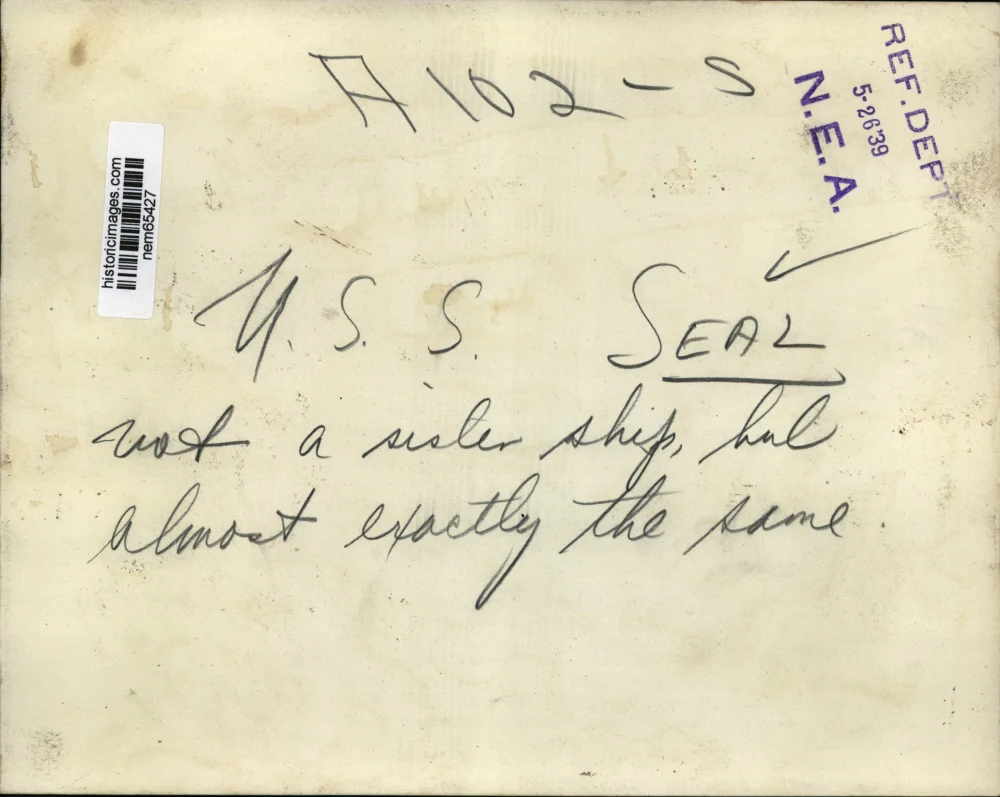 A102-S
REF. DEPT
5-26'39
N.E.A.
historicimages.com
nem65427
U.S.S. SEAL
not a sister ship, but
almost exactly the same